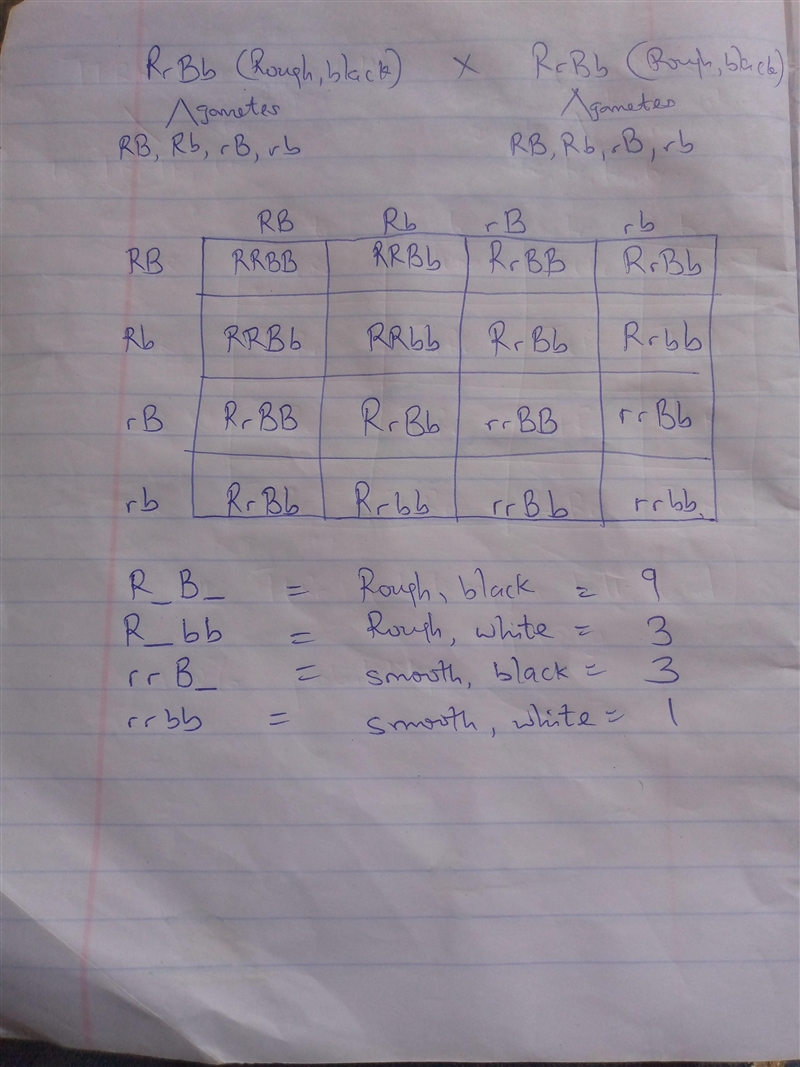 RrBb (Rough, black) x RrBb (Rough, black)
gametes gametes
RB, Rb, rB, rb RB, Rb, rB, rb
RB Rb rB rb
RB RRBB RRBb RrBB RrBb
Rb RRBb RRbb RrBb Rrbb
rB RrBB RrBb rrBB rrBb
rb RrBb Rrbb rrBb rrbb.
R_B_ = Rough, black = 9
R_bb = Rough, white = 3
rrB_ = smooth, black = 3
rrbb = smooth, white = 1